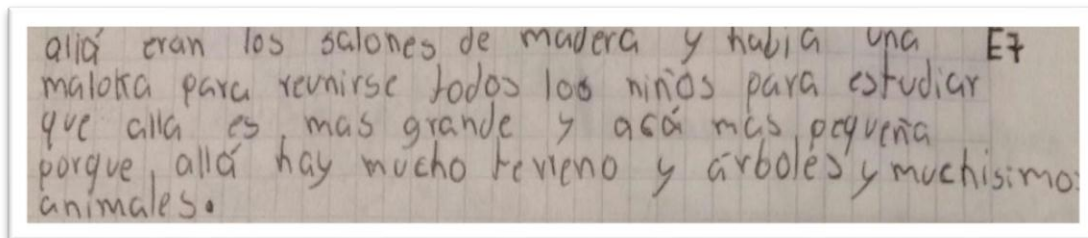 allá eran los salones de madera y habia una E7
maloka para reunirse todos los niños para estudiar
que alla es, mas grande y acá mas pequeña
porque, allá hay mucho terreno y árboles y muchisimos
animales.